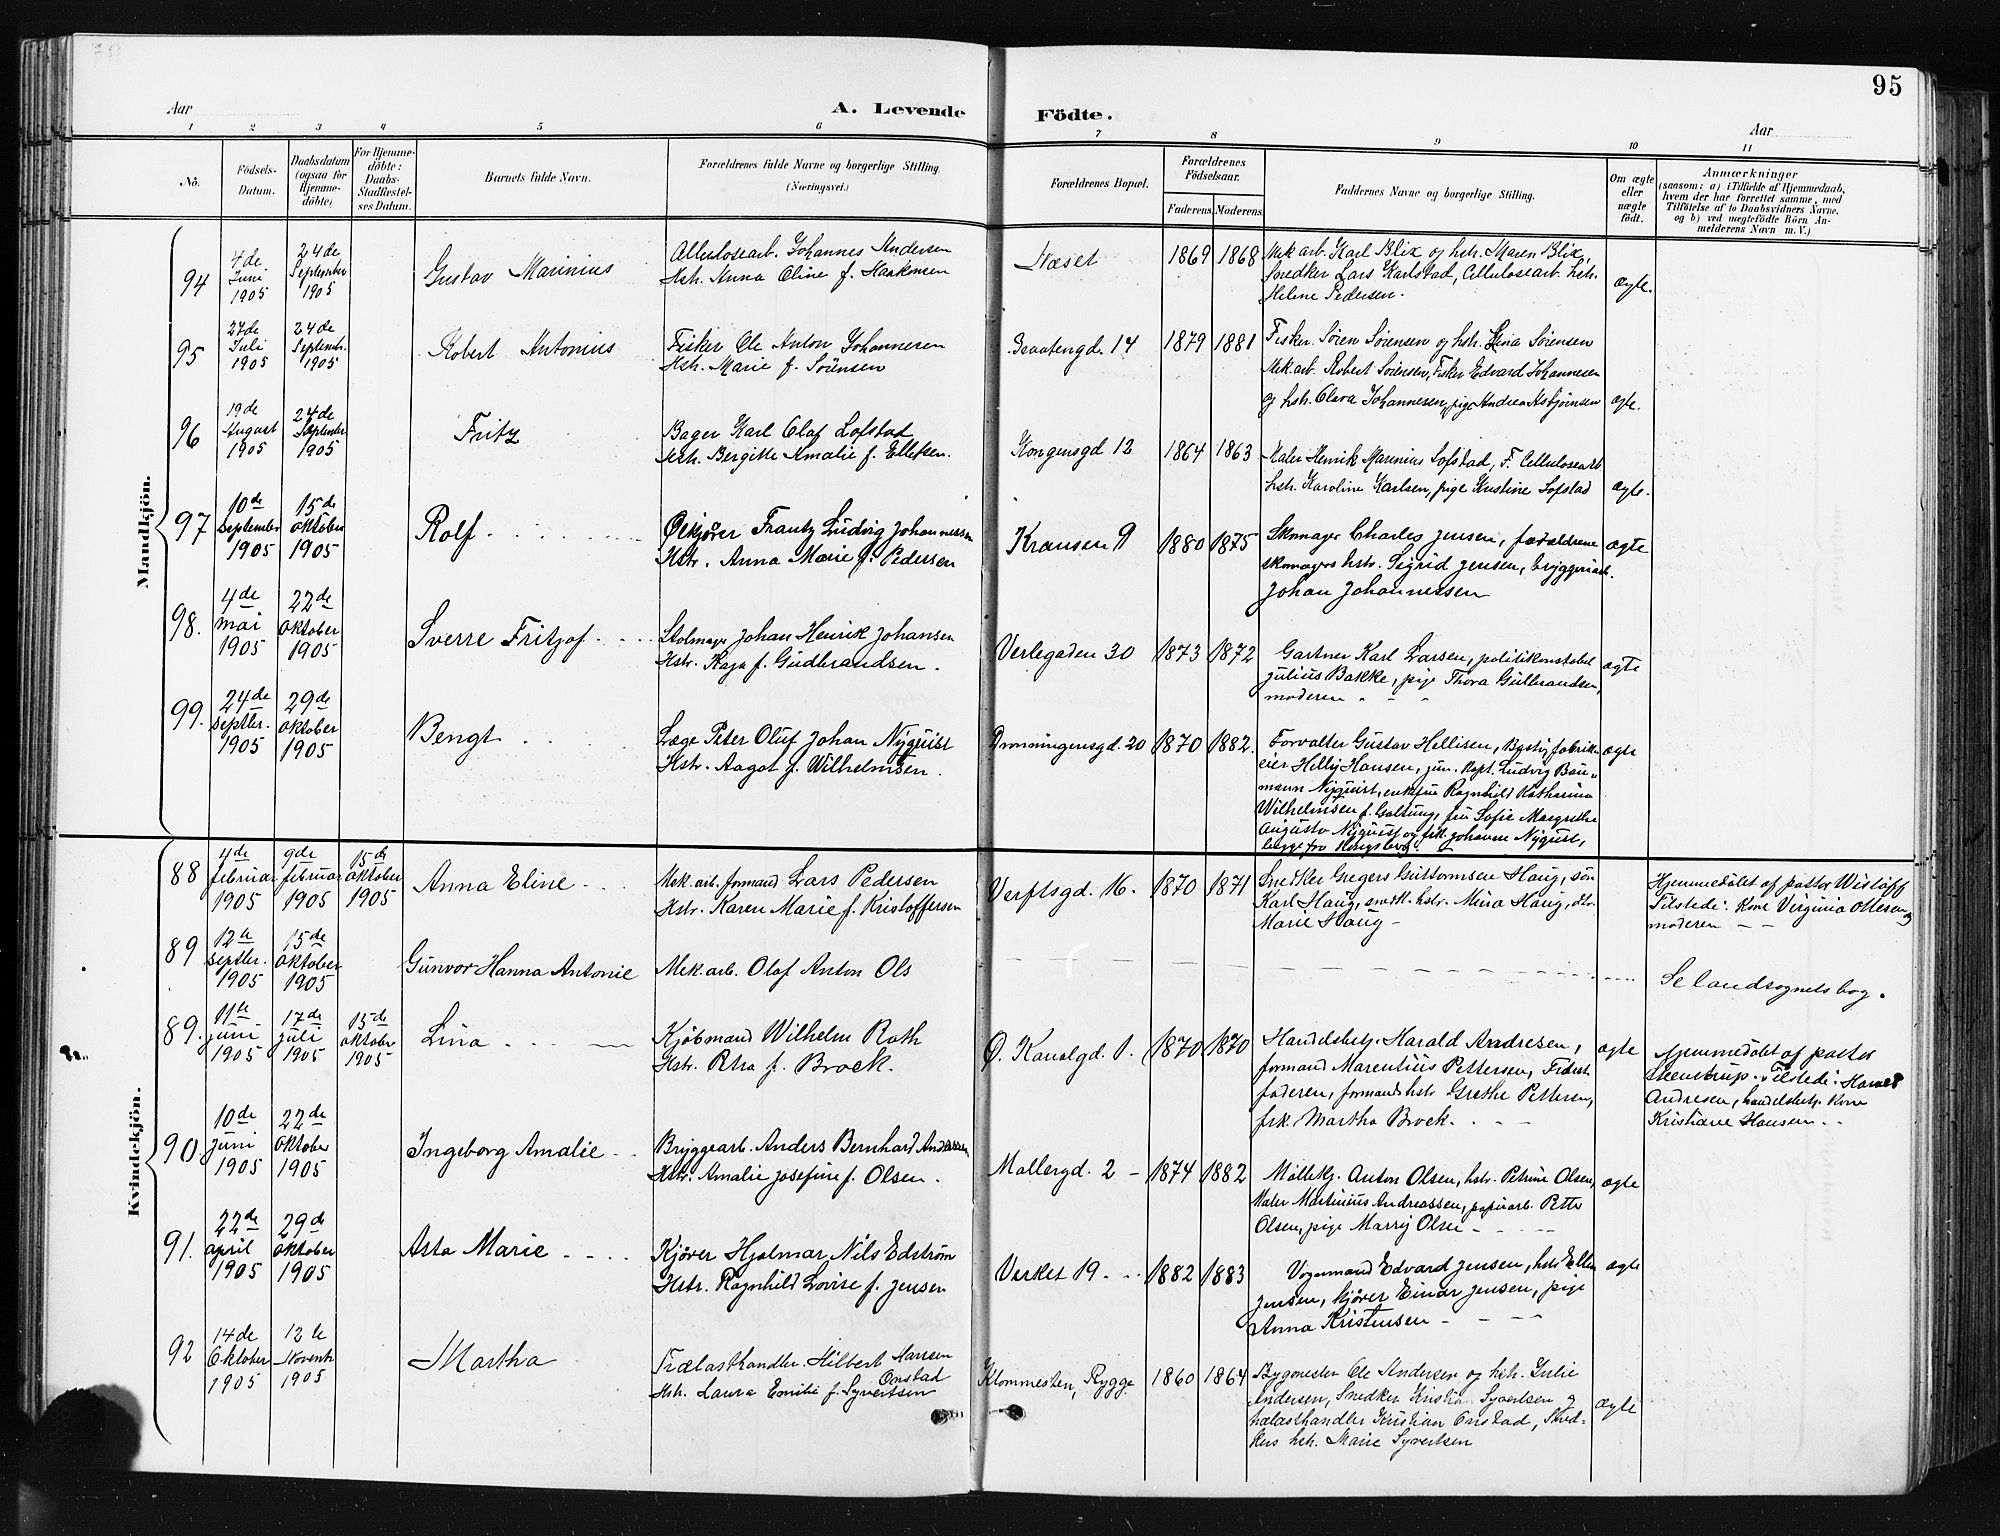 95
Aar
A. Levende
Födte.
Aar
1 2 3 4 5 6 7 8 9 10 11
No.
Födsels-
Datum.
Daabsdatum
(ogsaa for
Hjemme-
döbte)
For Hjemme-
döbte:
Daabs-
Stadfæstel-
ses Datum.
Barnets fulde Navn.
Forældrenes fulde Navne og borgerlige Stilling.
(Næringsvei.)
Forældrenes Bopæl.
Forældrenes
Födselsaar.
Faderens Moderens
Faddernes Navne og borgerlige Stilling.
Om ægte
eller
uægte
födt.
Anmærkninger
(saasom: a) i Tilfælde af Hjemmedaab,
hvem der har forrettet samme, med
Tilföielse af to Daabsvidners Navne,
og b) ved uægtefödte Börn An-
melderens Navn m. V.)
Mandkjön.
94
4de
Juni
1905
24de
September
1905
Gustav Marinius
Johannes Andersen
Hstr. Anna Oline f. Haakonsen
Næset
1869 1868
Mek arb. Karl Blix og hstr. Maren Blix,
Snedker Lars Karlstad, Cellulosearb. hstr.
Helene Pedersen.
ægte.
95
27de
Juli
1905
24de
Septembr.
1905
Robert Antonius
Fisker Ole Anton Johannesen
Hstr. Marie f. Sörensen
14
1879 1881
Fisker Sören Sörensen og hstr. Lina Sörensen
Mek.arb. Robert Sörensen, Fisker Edvard Johannesen
og hstr. Clara Johannesen, pige Andrea Asbjörnsen
ægte.
96
19de
August
1905
24de
September
1905
Fritz
Bager Karl Olaf Lofstad
Hstr. Bergitte Amalie f. Ellefsen.
Kongensgd 12
1864 1863
Maler Henrik Marinius Lofstad, F. Cellulosearb.
hstr. Karoline Karlsen, pige Kristine Lofstad
ægte.
97
10de
september
1905
15de
oktober
1905
Rolf
Ølkjörer Frantz Ludvig Johannessen
Hstr. Anna Marie f. Pedersen
Kransen 9
1880 1875
Skomager Charles Jensen, forældrene
skomagers hstr. Sigrid Jensen, bryggeriarb.
Johan Johannessen
ægte
98.
4de
mai
1905
22de
oktober
1905
Sverre Fritjof
Stolmager Johan Henrik Johansen
Hstr. Kaja f. Gudbrandsen.
Verlegaden 30
1873 1872
Gartner Karl Larsen, politikonstabel
Julius Bakke, pige Thora Gulbrandsen,
moderen
ægte
99.
24de
septbr.
1905
29de
oktober
1905
Bengt
Læge Peter Oluf Johan Nyquist
Hstr. Aagot f. Wilhelmsen.
Dronningensgd. 20
1870 1882.
Forvalter Gustav Hellisen,
eier Helly Hansen, jun. Kapt. Ludvig Bau-
mann Nyquist, enkefru Ragnhild Katharina
Wilhelmsen f. Galtung, fru Sofie Margrethe
Augusta Nyquist og frk. Johanne Nyquist,
ægte
Kvindekjön.
88
4de
februar
1905
9de
februar
1905
15de
oktober
1905
Anna Eline
Mek. arb. formand Lars Pedersen
Hstr. Karen Marie f. Kristoffersen
Verftsgd. 16.
1870 1871
Snedker Gregers Guttormsen Haug, sön
Karl Haug, snedk. hstr. Mina Haug, dtr.
Marie Haug
Hjemmedöbt af pastor Wisløff
Tilstede: Kone Virginia Ottesen og
moderen
89
12te
septbr.
1905
15de
oktober
1905
Gunvor Hanna Antonie
Mek. arb. Olaf Anton Ols
Se landsognets bog.
89.
11te
juni
1905
17de
juli
1905
15de
oktober
1905
Lina
Kjöbmand Wilhelm Roth
Hstr. Petra f. Brock.
Ø. Kanalgd. 1.
1870 1870
Handelsbetj. Harald Andresen,
formand Marentius Pettersen,
faderen, formands hstr Grethe Pettersen,
frk. Martha Brock.
ægte
Hjemmedöbt af pastor
Steenstrup. Tilstede: Harald
Andresen, handelsbetj. Kone
Kristiane Hansen
90.
10de
juni
1905
22de
oktober
1905
Ingeborg Amalie
Bryggearb. Anders Bernhard Andersen
Hstr. Amalie Josefine f. Olsen.
Møllergd. 2
1874 1882
Møllekj. Anton Olsen, hstr. Petrine Olsen,
Maler Martinius Andreassen, papirarb. Petter
Olsen, pige Marry Olsen
ægte
91.
22de
april
1905
29de
oktober
1905
Asta Marie
Kjörer Hjalmar Nils Edström
Hstr. Ragnhild Lovise f. Jensen
Verket 19.
1882 1883
Vognmand Edvard Jensen, hstr Ellen
Jensen, kjörer Einar Jensen, pige
Anna Kristensen
ægte
92
14de
Oktober
1905
12te
Novembr
1905
Martha
Trælasthandler Hilbert Hansen
Onstad
Hstr. Laura Emilie f. Syvertsen
Klommesten, Rygge
1860 1864
Bygmester Ole Andersen og hstr. Julie
Andersen, Snedker Kristian Syvertsen og
trælasthandler Kristian Onstad, Sned-
kers hstr. Marie Syvertsen
ægte